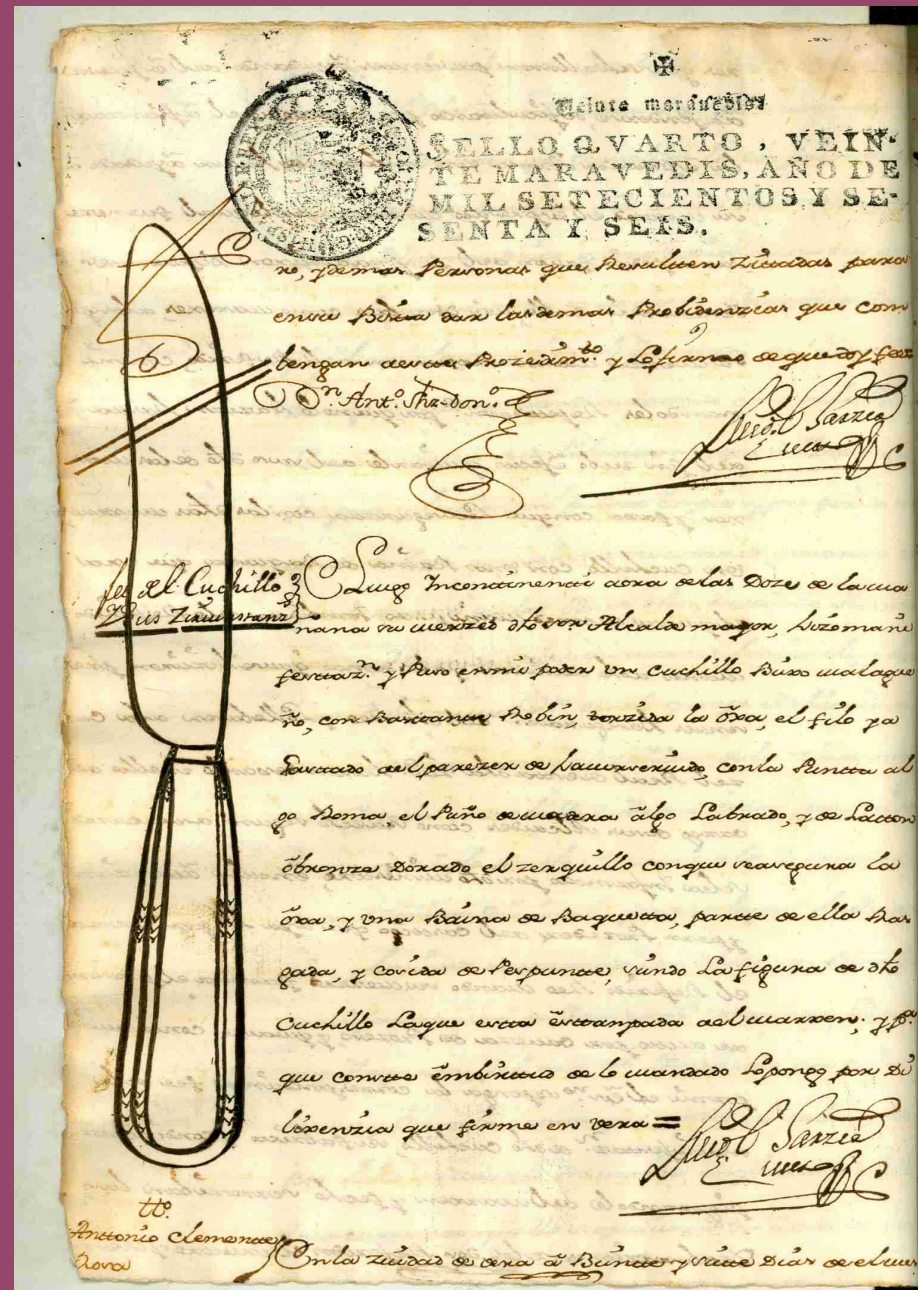 Veinte maravedis
SELLO QVARTO, VEIN-
TE MARAVEDIS, AÑO DE
MIL SETECIENTOS Y SE-
SENTA Y SEIS.
ro, y demas Personas que Resulten Zittadas para
en su Bista dar las demas Probidenzias que com
bengan a este Prozedim.to y lo firmo de que doy fee=
D.n Ant.o
fee del Cuchillo
y sus Zircunstanz.s
Luego Incontinenti aora de las Doze de la ma
ñana su merzed dho sor Alcalde mayor, hizo mani
festaz.n y Puso en mi poder un Cuchillo Buxo malague
ño, con Bastante Robin, torzida la oxa, el filo ya
Gastado al parezer de haver servido, con la Puntta al
go Roma, el Puño de madera algo Labrado, y de Latton
o bronze Dorado el zerquillo con que se asegura la
oxa, y una Baina de Baquetta, partte de ella Ras
gada, y cosida de Pespunte, siendo La figura de dho
Cuchillo La que esta esttanpada al marxen; y p.a
que conste en birttud de lo mandado lo pongo por Di
lixenzia que firme en vera =
tt.o
Anttonio Clemente
Rova
En la ziudad de vera a Beintte y siete Dias de el mes